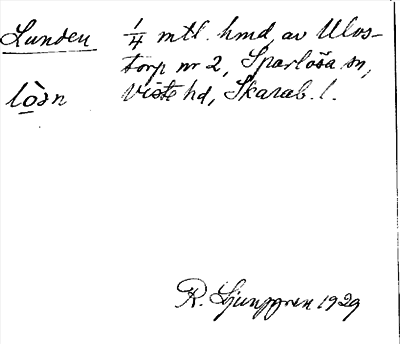 Lunden 1/4 mtl. hmd, av Ulvs-
torp nr 2, Sparlösa sn,
lò̱ǝn Viste hd, Skarab. l.
R. Ljunggren 1929